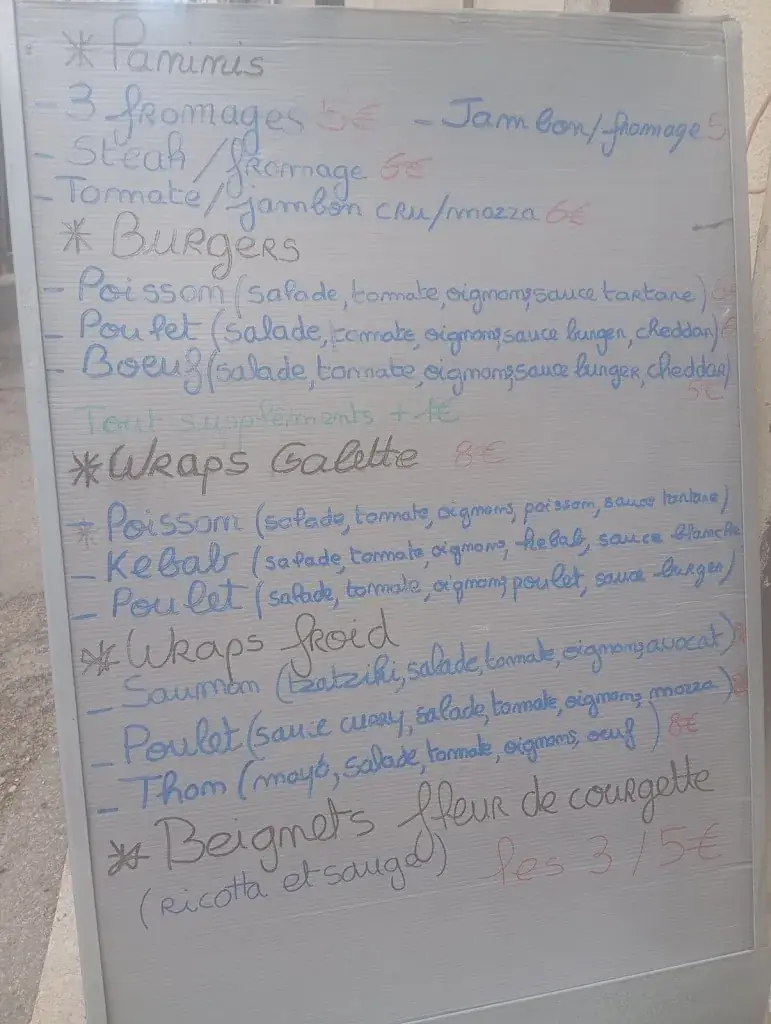 * Paninis
- 3 fromages 5€ - Jambon/fromage 5
- Steak/fromage 6€
- Tomate/jambon cru/mozza 6€
* Burgers
- Poisson (salade, tomate, oignons, sauce tartare)
- Poulet (salade, tomate, oignons, sauce burger, cheddar)
- Boeuf (salade, tomate, oignons, sauce burger, cheddar)
5€
Tout suppléments + 1€
* Wraps Galette 8€
- Poisson (salade, tomate, oignons, poisson, sauce tartare)
- Kebab (salade, tomate, oignons, kebab, sauce blanche
- Poulet (salade, tomate, oignons poulet, sauce burger)
* Wraps froid
- Saumon (tzatziki, salade, tomate, oignons, avocat)
- Poulet (sauce curry, salade, tomate, oignons, mozza)
- Thon (mayo, salade, tomate, oignons, oeuf) 8€
* Beignets fleur de courgette
(Ricotta et sauge) les 3/5€